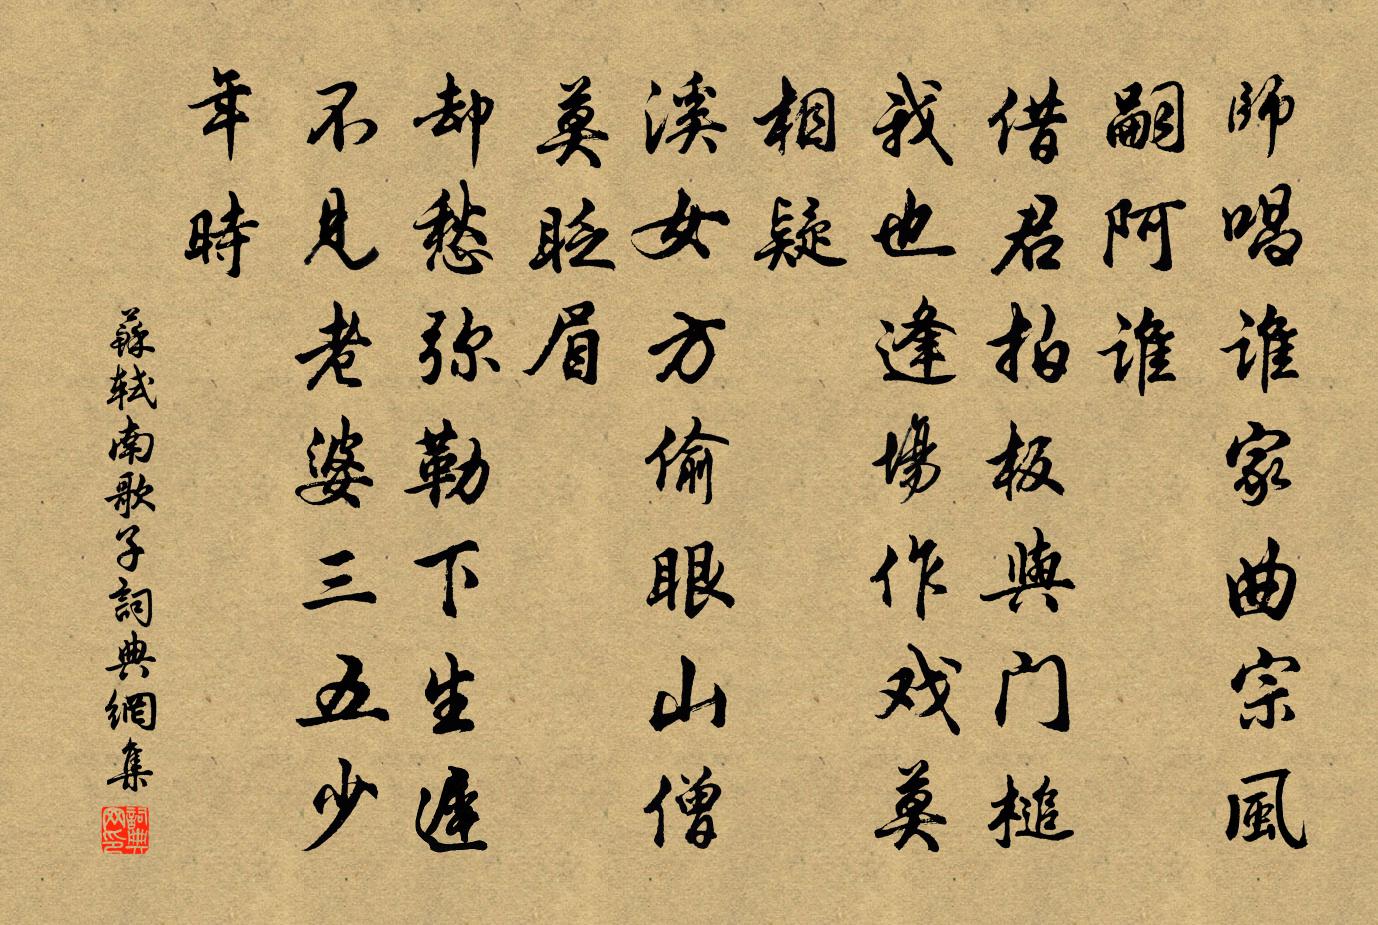 師唱誰家曲宗風
嗣阿誰
借君拍板與门槌
我也逢場作戏莫
相疑
溪女方偷眼山僧
莫眨眉
却愁弥勒下生遲
不見老婆三五少
年時
蘇軾南歌子詞典網集
詞典网印